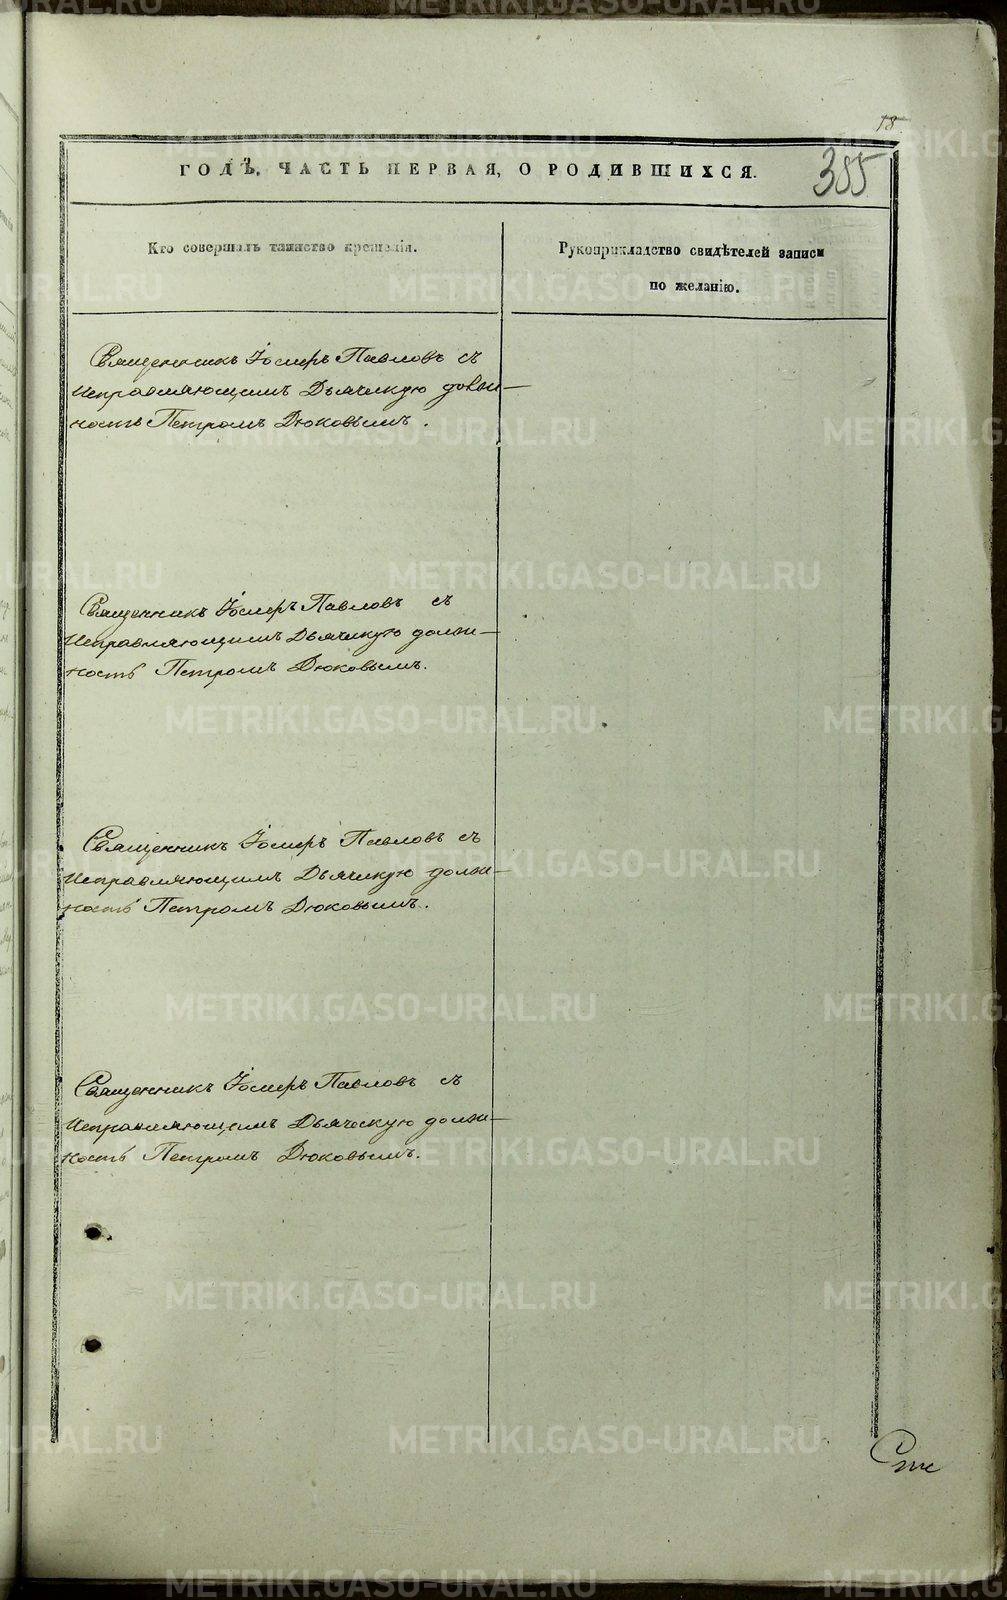 18
385
ГОДѢ, ЧАСТЬ ПЕРВАЯ, О РОДИВШИХСЯ.
Кто совершалъ таинство крещенія.
Рукоприкладство свидѣтелей записи
по желанію.
Священникъ Іосифъ Павловъ съ
исправляющимъ Дьяческую долж—
ность Петромъ Дюковымъ.
Священникъ Іосифъ Павловъ съ
Исправляющимъ Дьяческую долж—
ность Петромъ Дюковымъ.
Священникъ Іосифъ Павловъ съ
исправляющимъ Дьяческую долж—
ность Петромъ Дюковымъ.
Священникъ Іосифъ Павловъ съ
исправляющимъ Дьяческую долж—
ность Петромъ Дюковымъ.
METRIKI.GASO-URAL.RU